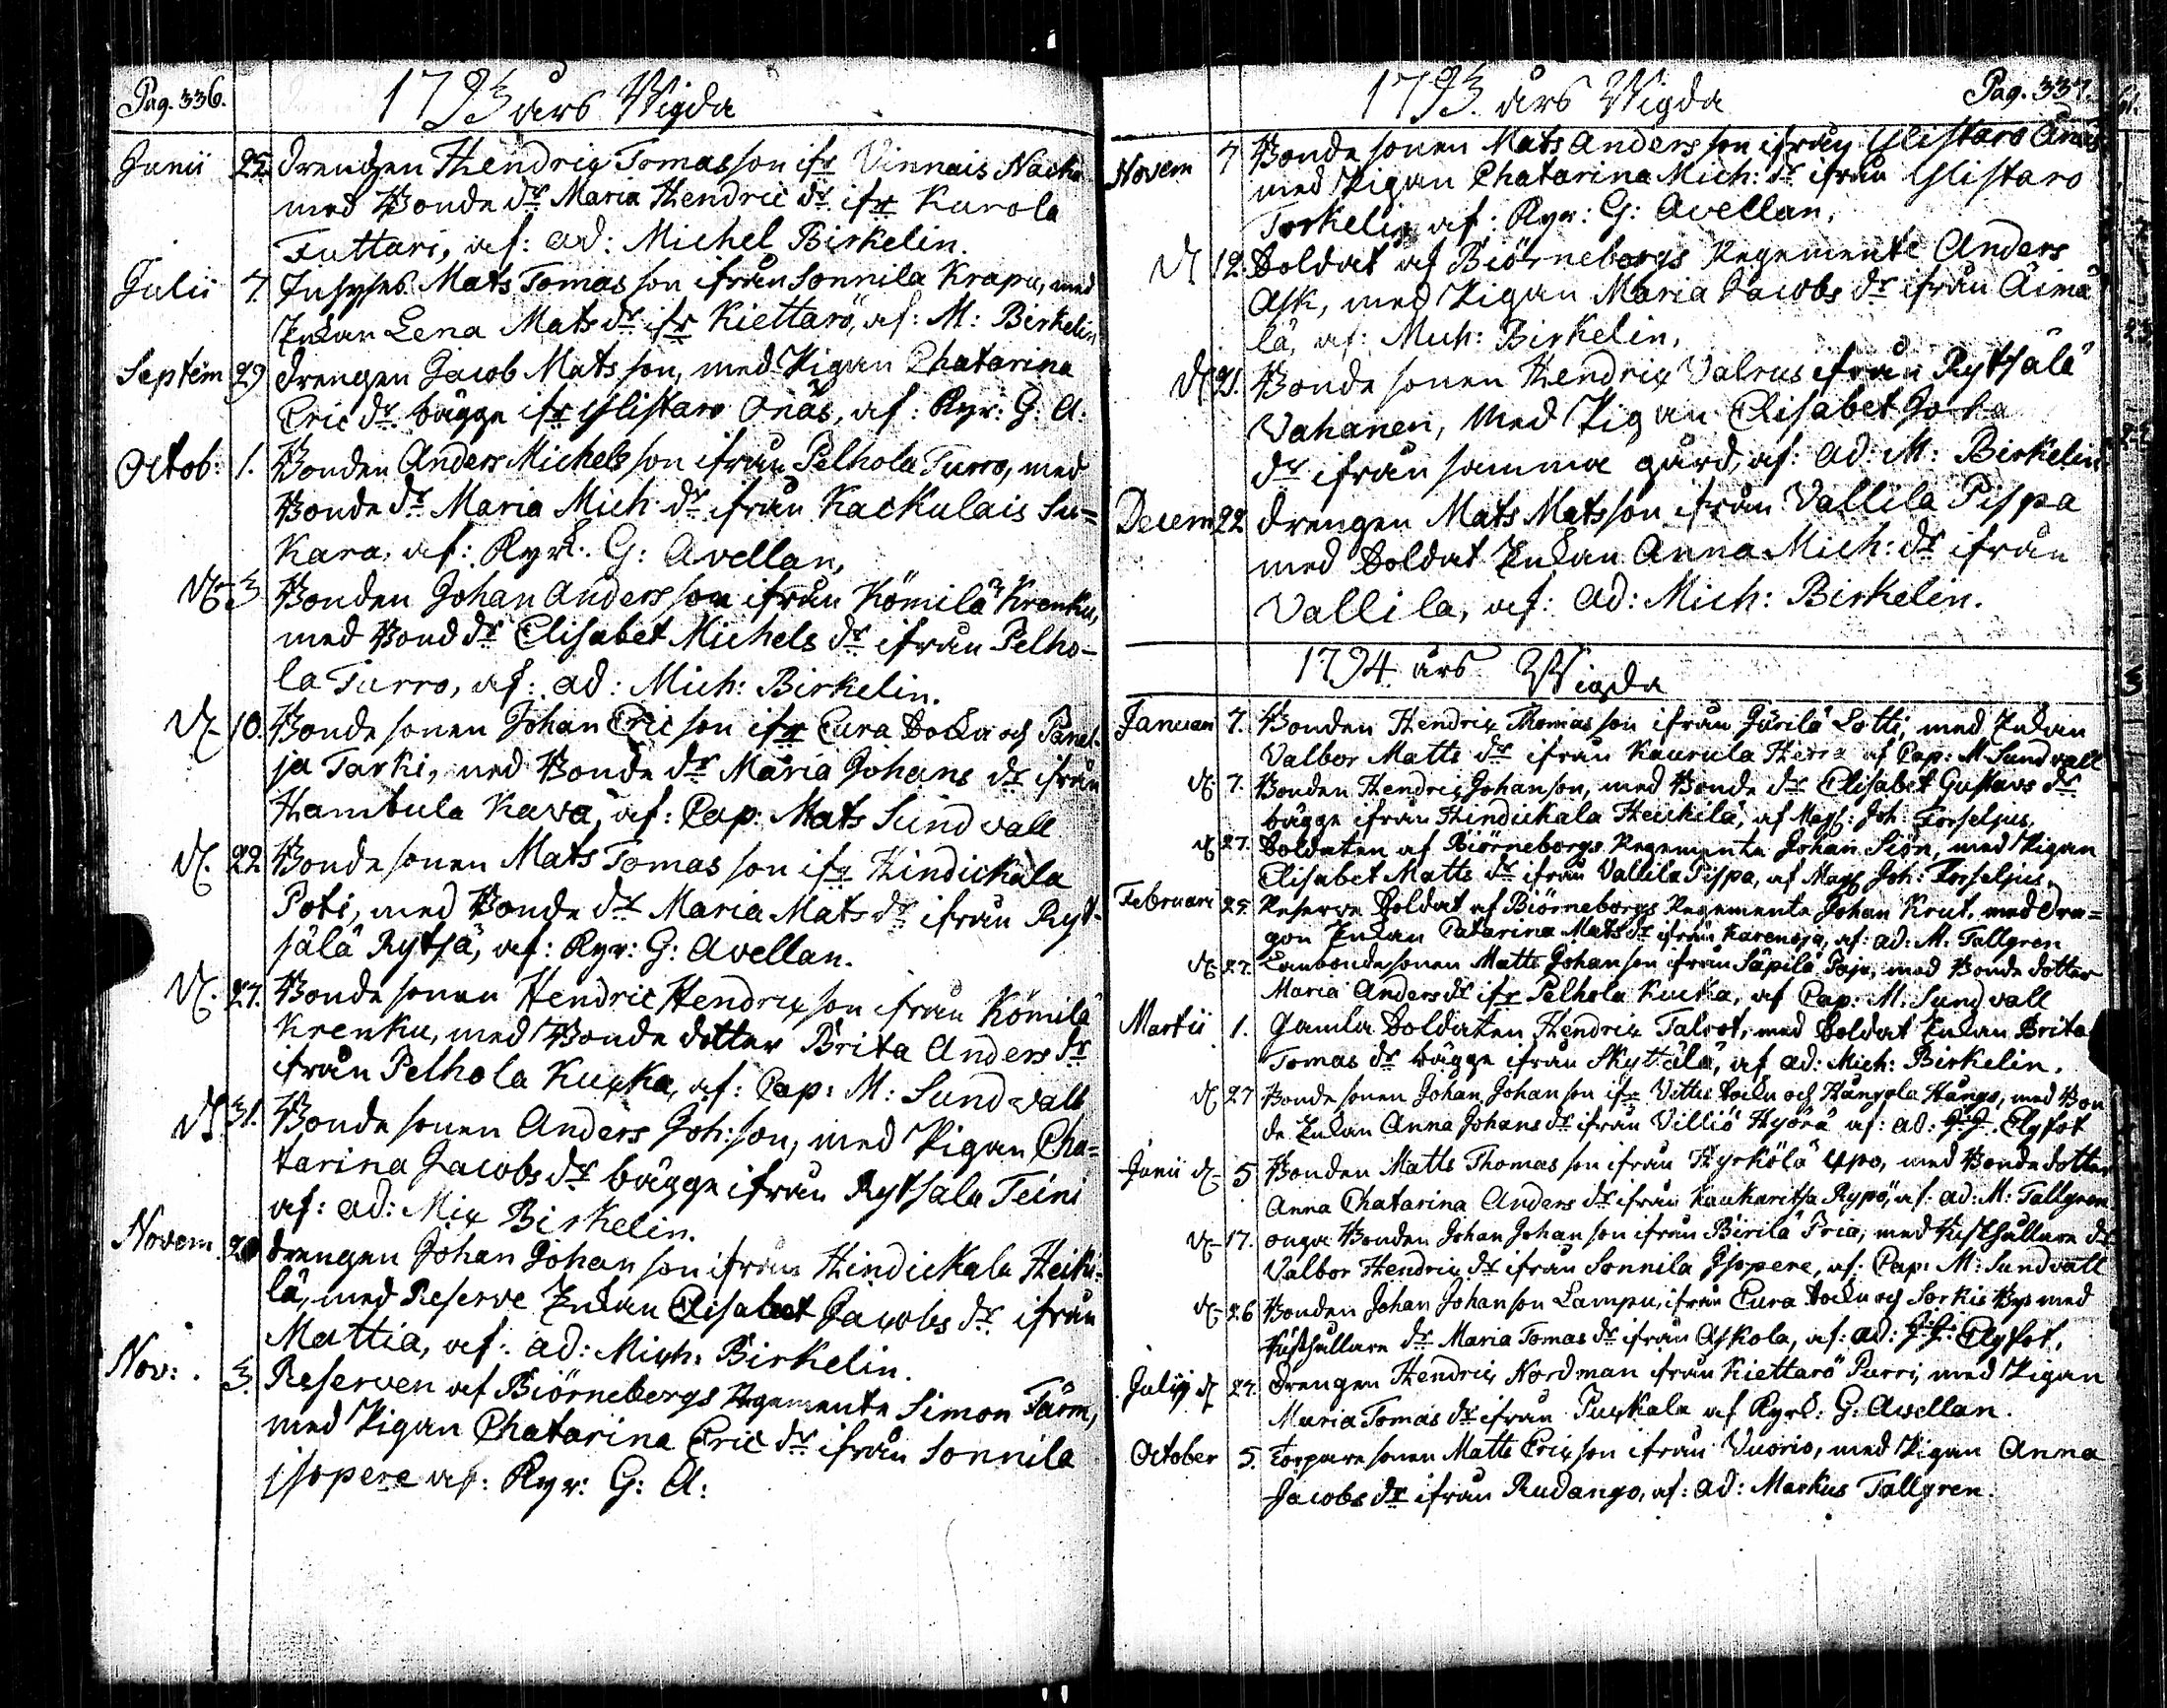 Pag. 336.
1793 års Wigda
Junii 25. drengen Hendrig Tomasson ifr Vinnais Nacku
med Bonde dr Maria Hendric dr. ifr Karola
Tuttari, af: ad: Michel Birkelin.
Julii 7. Inhyses Mats Tomas son ifrån Sonnila Krapu, med
Enkan Lena Mats dr ifr Kiettarö, af: M: Birkelin
Septem 29 drengen Jacob Mats son, med Pigan Chatarina
Eric dr. bägge ifr Ylistaro Onäs, af: Kyr: G: A:
Octob: 1. Bonden Anders Michels son ifrån Pelhola Turro, med
Bonde dr Maria Mich: dr ifrån Kackulais Su=
kara, af: Kyrk: G: Avellan,
d. 3 Bonden Johan Anders son ifrån Kömilä Krenku,
med Bond dr Elisabet Michels dr ifrån Pelho-
la Turro, af: ad: Mich: Birkelin.
d. 10. Bonde sonen Johan Eric son ifr Eura Sockn och Panel-
ja Tarki, med Bonde dr Maria Johans dr ifrån
Hambula Kava, af: Cap: Mats Sundvall
d. 22 Bonde sonen Mats Tomas son ifr Hindickala
Poti, med Bonde dr Maria Mats dr ifrån Ryt-
sälä Rytsä, af: Kyr: G: Avellan.
d. 27. Bonde sonen Hendric Hendrix son ifrån Kömilä
Krenku, med Bonde dotter Brita Anders dr
ifrån Pelhola Kuxka, af: Cap: M: Sundvall
d. 31. Bonde sonen Anders Joh: son, med Pigan Cha=
tarina Jacobs dr bägge ifrån Rytsala Teini
af: ad: Mix Birkelin.
Novem drengen Johan Johan son ifrån Hindickala Heiki=
lä, med Reserve Enkan Elisabet Jacobs dr ifrån
Mattia, af: ad: Mich: Birkelin.
Nov: 3. Reserven af Biörneborgs Regemente Simon Färm,
med Pigan Chatarina Eric dr ifrån Sonnila
jsopere af: Kyr: G: A:
1793. års Wigda Pag. 337.
Novem 7 Bonde sonen Mats Anders son ifrån Ylistaro
med Pigan Chatarina Mich: dr ifrån Ylistaro
Torkelix af: Kyr: G: Avellan,
d. 12. Soldat af Biörneborgs Regemente Anders
Ask, med Pigan Maria Jacobs dr ifrån Äimä
lä, af: Mich: Birkelin.
d. 21. Bonde sonen Hendrix Valrus ifrån Rytsälä
Vahanen, med Pigan Elisabet Joha
dr ifrån samma gård, af: ad: M: Birkelin
Decem 22 drengen Mats Matsson ifrån Vallila Pispa
med Soldat Enkan Anna Mich: dr ifrån
Vallila, af: ad: Mich: Birkelin.
1794 års Wigda
Januari 7. Bonden Hendrix Thomas son ifrån Järilä Lotti, med Enkan
Valbor Matts dr ifrån Kaurula Herra af Cap: M Sundvall
d. 7. Bonden Hendrix Johanson, med Bonde dr Elisabet Gustavs dr
bägge ifrån Hindickala Heickilä, af Mag: Joh: Forseljus,
d. 27. Soldaten af Biörneborgs Regemente Johan Siön, med Pigan
Elisabet Matts dr ifrån Vallila Pispa, af Mag: Joh: Forseljus.
Februari 25. Reserve Soldat af Biörneborgs Regemente Johan Krut, med Dra=
gon Enkan Catarina Mats dr ifrån Karenoja, af: ad: M: Tallgren
d. 27. Lanbondesonen Matts Johan son ifrån Säpilä Paju, med Bonde dotter
Maria Anders dr ifr Pelhola Kucka, af Cap: M: Sundvall
Martii 1. Gamla Soldaten Hendrix Talrot, med Soldat Enkan Brita
Tomas dr bägge ifrån Skyttälä, af ad: Mich: Birkelin.
d. 27 Bonde sonen Johan Johan son ifr Vittis Sockn och Hångola Hångo, med Bon
de Enkan Anna Johans dr ifrån Villiö Hyörä af: ad: J:J: Elgfot
Junii d. 5 Bonden Matts Thomas son ifrån Hyrkölä Ypo, med Bonde dotter
Anna Chatarina Anders dr ifrån Kaukaritsa Rypö, af: ad: M: Tallgren
d. 17. unga Bonden Johan Johan son ifrån Pirilä Pria, med Rusthållare dr
Valbor Hendrix dr ifrån Sonnila Jsopere, af: Cap: M: Sundvall
d. 26 Bonden Johan Johan son Lampu, ifrån Eura Sockn och Sorkis By med
Rusthållare dr Maria Tomas dr ifrån Askola, af: ad: J:J: Elgfot,
Julij d. 27. drengen Hendrix Nordman ifrån Kiettarö Purri, med Pigan
Maria Tomas dr ifrån Puxkala af Kyrk: G: Avellan.
October 5. Torpare sonen Matts Erix son ifrån Vuorio, med Pigan Anna
Jacobs dr ifrån Rudango, af: ad: Markus Tallgren.